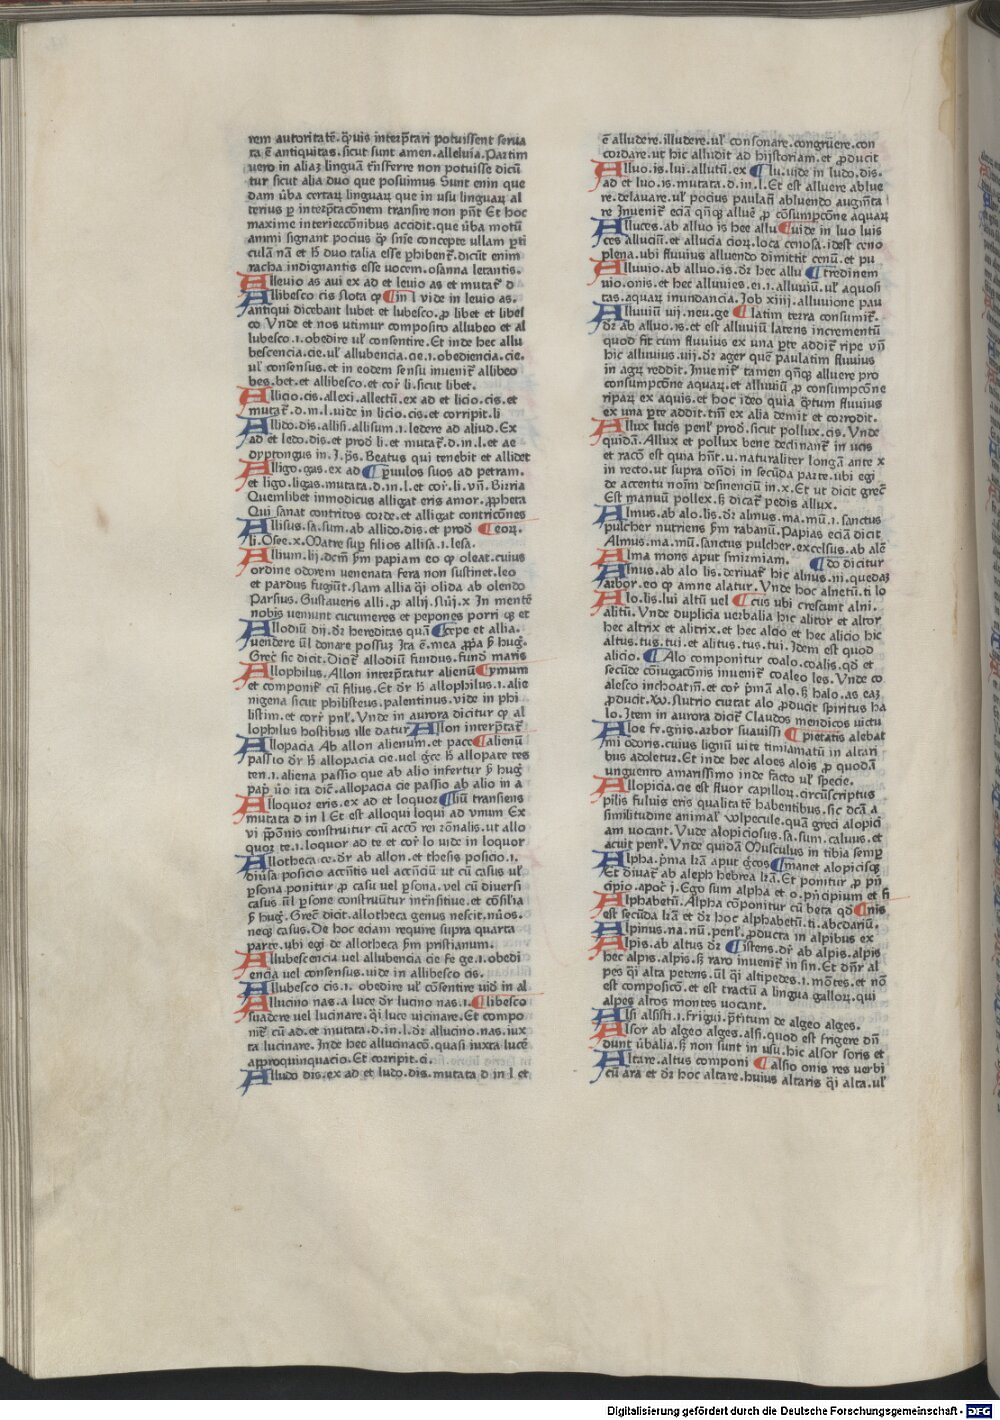 rem autoritatē. q̄uis interp̄tari potuissent serua
ta ē antiquitas. sicut sunt amen. alleluia. Partim
uero in aliaꝫ linguā trāsferre non potuisse dicū
tur sicut alia duo que posuimus Sunt enin que
dam ūba certaꝝ linguaꝝ que in usu linguaꝝ al
terius ꝑ interp̄tacōnem transire non pn̄t Et hoc
maxime interieccōnibus accidit. que ūba motū
ammi signant pocius ꝙ sn̄ie concepte ullam ꝑti
culā nā et h̄ duo talia esse ꝑhibent̄. dicūt enim
racha indignantis esse uocem. osanna letantis.
Alleuio as aui ex ad et leuio as et mutat̄ d
Allibesco cis slota ꝙ ¶in l vide in leuio as.
antiqui dicebant lubet et lubesco. ꝓ libet et libes
co Vnde et nos utimur composito allubeo et al
lubesco. ı. obedire ul̄ consentire. Et inde hec allu
bescencia. cie. ul̄ allubencia. cie. ı. obediencia. cie.
ul̄ consensus. et in eodem sensu inuenit̄ allibeo
bes. bet. et allibesco. et cor̄ li. sicut libet.
Allicio. cis. allexi. allectū. ex ad et licio. cis. et
mutat̄. d. in. l. uide in licio. cis. et corripit. li
Allido. dis. allisi. allisum. ı. ledere ad aliud. Ex
ad et ledo. dis. et prod̄ li. et mutat̄. d. in. l. et ae
dyptongus in. ī. p̄s. Beatus qui tenebit et allidet
Alligo. gas. ex ad ¶ꝑuulos suos ad petram.
et ligo. ligas. mutata. d. in. l. et cor̄. li. vn̄. Birria
Quemlibet inmodicus alligat eris amor. ꝓpheta
Qui sanat contritos corde. et alligat contricōnes
Allisus. sa. sum. ab allido. dis. et prod̄ ¶eoꝝ.
li. Osee. x. Matre suꝑ filios allisa. ı. lesa.
Allium. lij. dcm̄ ẜm papiam eo ꝙ oleat. cuius
ordine odorem uenenata fera non sustinet. leo
et pardus fugiūt. slam allia q̄i olida ab olendo
Parsius. Gustaueris alli. ꝓ allij. Nūi. x In mentē
nobis ueniunt cucumeres et pepones porri ꝙ et
Allodiū dij. dr̄ hereditas quā ¶cepe et allia.
uendere ul̄ donare possuꝫ Ita ē. mea ꝓp̄a ẜ huḡ.
Grec̄ sic dicit. Dicit̄ allodiū fundus. fund̄ maris
Allophilus. Allon interp̄tatur alienū ¶ymum
et componit̄ cū filius. Et dr̄ h̄ allophilus. ı. alie
nigena sicut philisteus. palentinus. vide in phi
listim. et cor̄ pnl̄. Vnde in aurora dicitur ꝙ al
lophilus hostibus ille datur Allon interp̄tat̄
Allopacia Ab allon alienum. et pace ¶alienū
passio dr̄ h̄ allopacia cie. vel gr̄ce h̄ allopate tes
ten. ı. aliena passio que ab alio infertur ẜ huḡ
pap̄ ūo ita dic̄. allopacia cie passio ab alio in a
Alloquor eris. ex ad et loquor ¶liū transiens
mutata d in l Et est alloqui loqui ad vnum Ex
vi p̄pōnis construitur cū accō rei rōnalis. ut allo
quor te. ı. loquor ad te et cor̄ lo vide in loquor
Allotheca ce. dr̄ ab allon. et thesis posicio. ı.
diūsa posicio accn̄tis vel accn̄ciū ut cū casus ul̄
ꝑsona ponitur ꝓ casu vel ꝑsona. vel cū diuersi
casus ūl ꝑsone construūtur intn̄sitiue. et cōsilia
ẜ huḡ. Grec̄ dicit. allotheca genus nescit. nūos.
neqꝫ casus. De hoc eciam require supra quarta
parte. ubi egi de allotheca ẜm pristianum.
Allubescencia uel allubencia cie fe ge. ı. obedi
encia vel consensus. uide in allibesco cis.
Allubesco cis. ı. obedire ul̄ cōsentire uid̄ in al
Allucino nas. a luce dr̄ lucino nas. ı. ¶libesco
suadere vel lucinare. q̄i luce uicinare. Et compo
nit̄ cū ad. et mutata. d. in. l. dr̄ allucino. nas. iux
ta lucinare. Inde hec allucinacō. quasi iuxta lucē
approquinquacio. Et corripit. ci.
Alludo dis. ex ad et ludo. dis. mutata d in l et
ē alludere. illudere. ul̄ consonare. congruere. con
cordare. ut hic alludit ad hijstoriam. et ꝓducit
Alluo. is. lui. allutū. ex ¶lu. uide in ludo. dis.
ad et luo. is. mutata. d. in. l. Et est alluere ablue
re. delauare. ul̄ pocius paulatī abluendo augmn̄ta
re Inuenit̄ eciā qn̄qꝫ alluē ꝓ cōsumpcōne aquaꝝ
Alluces. ab alluo is hec allu ¶uide in luo luis
ces alluciū. et allucia cioꝝ. loca cenosa. idest ceno
plena. ubi fluuius alluendo dimittit cenū. et pu
Alluuio. ab alluo. is. dr̄ hec allu ¶tredinem
uio. onis. et hec alluuies. ei. ı. alluuiū. ul̄ aquosi
tas. aquaꝝ inundancia. Job xiiij. alluuione pau
Alluuiū uij. neu. ge ¶latim terra consumit̄.
dr̄ ab alluo. is. et est alluuiū latens incrementū
quod fit cum fluuius ex una ꝑte addit̄ ripe vn̄
hic alluuius. uij. dr̄ ager quē paulatim fluuius
in agꝝ reddit. Inuenit̄ tamen qn̄qꝫ alluere pro
consumpcōne aquaꝝ. et alluuiū ꝓ consumpcōne
ripaꝝ ex aquis. et hoc ideo quia q̄ntum fluuius
ex una ꝑte addit. tm̄ ex alia demit et corrodit.
Allux lucis penl̄ prod̄. sicut pollux. cis. Vnde
quidā. Allux et pollux bene declinant̄ in ucis
et racō est quia hn̄t. u. naturaliter longā ante x
in recto. ut supra on̄di in secūda parte. ubi egi
de accentu noīm desinenciū in. x. Et ut dicit grec̄
Est manuū pollex. ẜꝫ dicat̄ pedis allux.
Almus. ab alo. lis. dr̄ almus. ma. mū. ı. sanctus
pulcher nutriens ẜm rabanū. Papias eciā dicit
Almus. ma. mū. sanctus pulcher. excelsus. ab alē
Alma mons aput smirmiam. ¶do dicitur
Alnus. ab alo lis. deriuat̄ hic alnus. ni. quedaꝫ
arbor. eo ꝙ amne alatur. Vnde hoc alnetū. ti lo
Alo. lis. lui altū uel ¶cus ubi crescunt alni.
alitū. Vnde duplicia uerbalia hic alitor et altor
hec altrix et alitrix. et hec alcio et hec alicio hic
altus. tus. tui. et alitus. tus. tui. Idem est quod
alicio. ¶Alo componitur coalo. coalis. qd̄ et
secūde cōiugacōnis inuenit̄ coaleo les. Vnde co
alesco inchoatiū. et cor̄ p̄mā alo. ẜꝫ halo. as eaꝫ
ꝓducit. Xv. slutrio curtat alo ꝓducit spiritus ha
lo. Item in aurora dicit̄ Claudos mendicos uictu
Aloe fe. gnis. arbor suauissi ¶pietatis alebat
mi odoris. cuius lignū uice timiamatū in altari
bus adoletur. Et inde hec aloes alois ꝓ quodā
unguento amarissimo inde facto ul̄ specie.
Allopicia. cie est fluor capilloꝝ. circūscriptus
pilis fuluis eris qualitatē habentibus. sic dcā a
similitudine animal̄ wlpecule. quā greci alopici
am uocant. Vnde alopiciosus. sa. sum. caluus. et
acuit penl̄. Vnde quidā Musculus in tibia semꝑ
Alpha. p̄ma lr̄a aput gr̄cos ¶manet alopicisqꝫ
Et diuat̄ ab aleph hebrea lr̄a. Et ponitur ꝓ pn̄
cipio. apoc̄ j. Ego sum alpha et o. pn̄cipium et fi
Alphabetū. Alpha cōponitur cū beta qd̄ ¶nis
est secūda lr̄a et dr̄ hoc alphabetū. ti. abcdariū.
Alpinus. na. nū. penl̄. ꝓducta in alpibus ex
Alpis. ab altus dr̄ ¶istens. dr̄ ab alpis. alpis
hec alpis. alpis. ẜꝫ raro inuenit̄ in sin. Et dn̄r al
pes q̄i alta petens. ūl q̄i altipedes. ı. mōtes. et nō
est composicō. et est tractū a lingua galloꝝ. qui
alpes altos montes uocant.
Alsi alsisti. ı. frigui. p̄titum de algeo alges.
Alsor ab algeo alges. alsi. quod est frigere dn̄
dunt ūbalia. ẜꝫ non sunt in usu. hic alsor soris et
Altare. altus componi ¶alsio onis res uerbi
cū ara et dr̄ hoc altare. huius altaris q̄i alta. ul̄
Digitalisierung gefördert durch die Deutsche Forschungsgemeinschaft - DFG